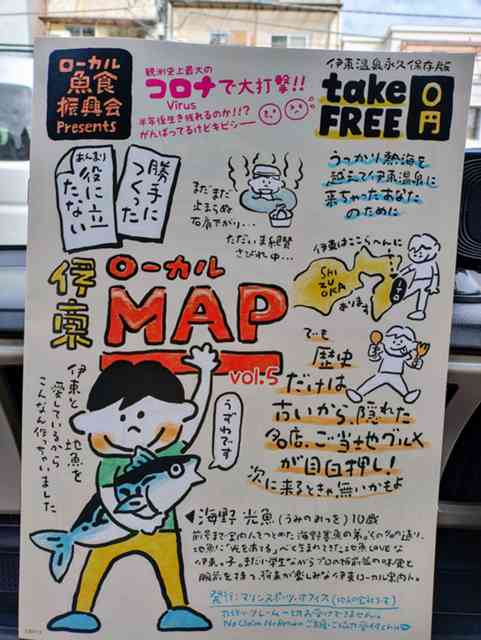 ローカル
魚食
振興会
Presents
観測史上最大の
コロナで大打撃!!
Virus
半年後生き残れるのか!!?
がんばってるけどキビシー
伊東温泉永久保存版
take
FREE
0円
あんまり
役に立
たない
勝手に
つくった
まだまだ
止まらぬ
右肩下がり…
ただいま絶賛
さびれ中…
うっかり熱海を
越えて伊東温泉に
来ちゃったあなた
のために
伊東はここらへんに
SHI
ZU
OKA
あります
ITO
伊東
ローカル
MAP
vol.5
でも
歴史
だけは
古いから、隠れた
名店、ご当地グルメ
が目白押し!
次に来るときゃ無いかもよ
伊東と地魚を
愛しているから
こんなん作っちゃいました
うずわです
◀海野 光魚(うみのみつを)10歳
発行:マリンスポーツ・オフィス
クレームは一切お受けできません。
No Claim No Return